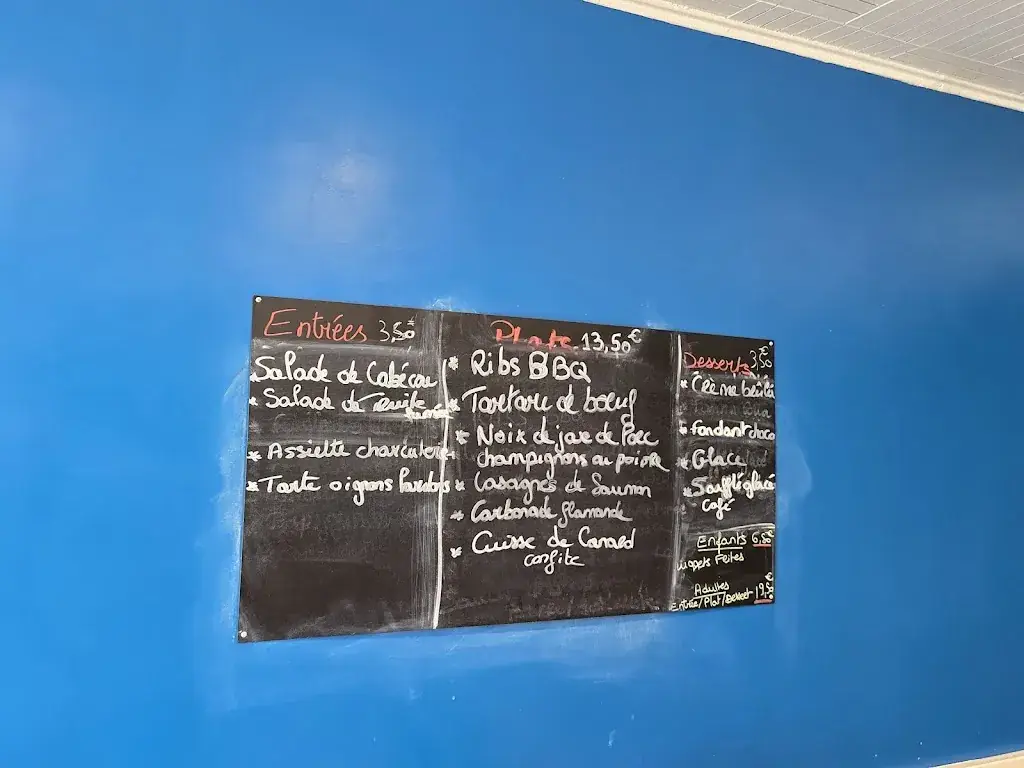 Entrées 3,50€
Salade de Cabécou
* Salade de Truite
fumée
* Assiette charcuterie
* Tarte oignons lardons
Plats 13,50€
* Ribs BBQ
* Tartare de boeuf
* Noix de joue de Porc
champignons au poivre
* Lasagnes de Saumon
* Carbonade flamande
* Cuisse de Canard
confite
Desserts 3,50€
* Crème brûlé
* fondant choco
* Glace
* Soufflé glacé
café
Enfants 6,50€
nuggets Frites
Adultes
Entrée/Plat/Dessert 19,50€